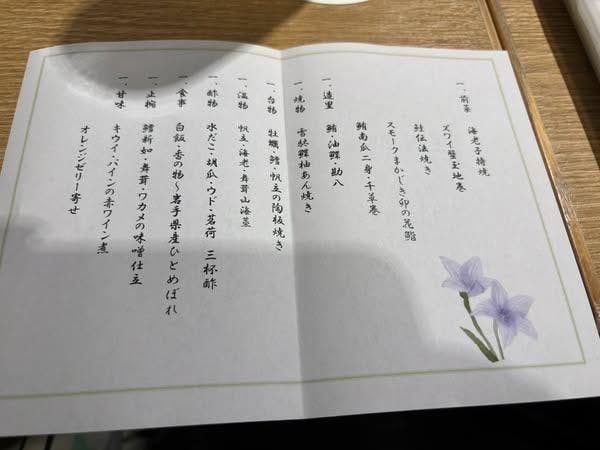 一、前菜 海老子持焼
ズワイ蟹玉地巻
鮭伝法焼き
スモークまかじき卯の花鮨
鮪南瓜二身・千草巻
一、造里 鮪・油鰈・勘八
一、焼物 雪終鰹柚あん焼き
一、台物 牡蠣、鱈・帆立の陶板焼き
一、温物 帆立・海老・舞茸山海蒸
一、酢物 水だこ・胡瓜・ウド・茗荷 三杯酢
一、食事 白飯・香の物～岩手県産ひとめぼれ
一、止椀 鱈新如・舞茸・ワカメの味噌仕立
一、甘味 キウイ・パインの赤ワイン煮
オレンジゼリー寄せ